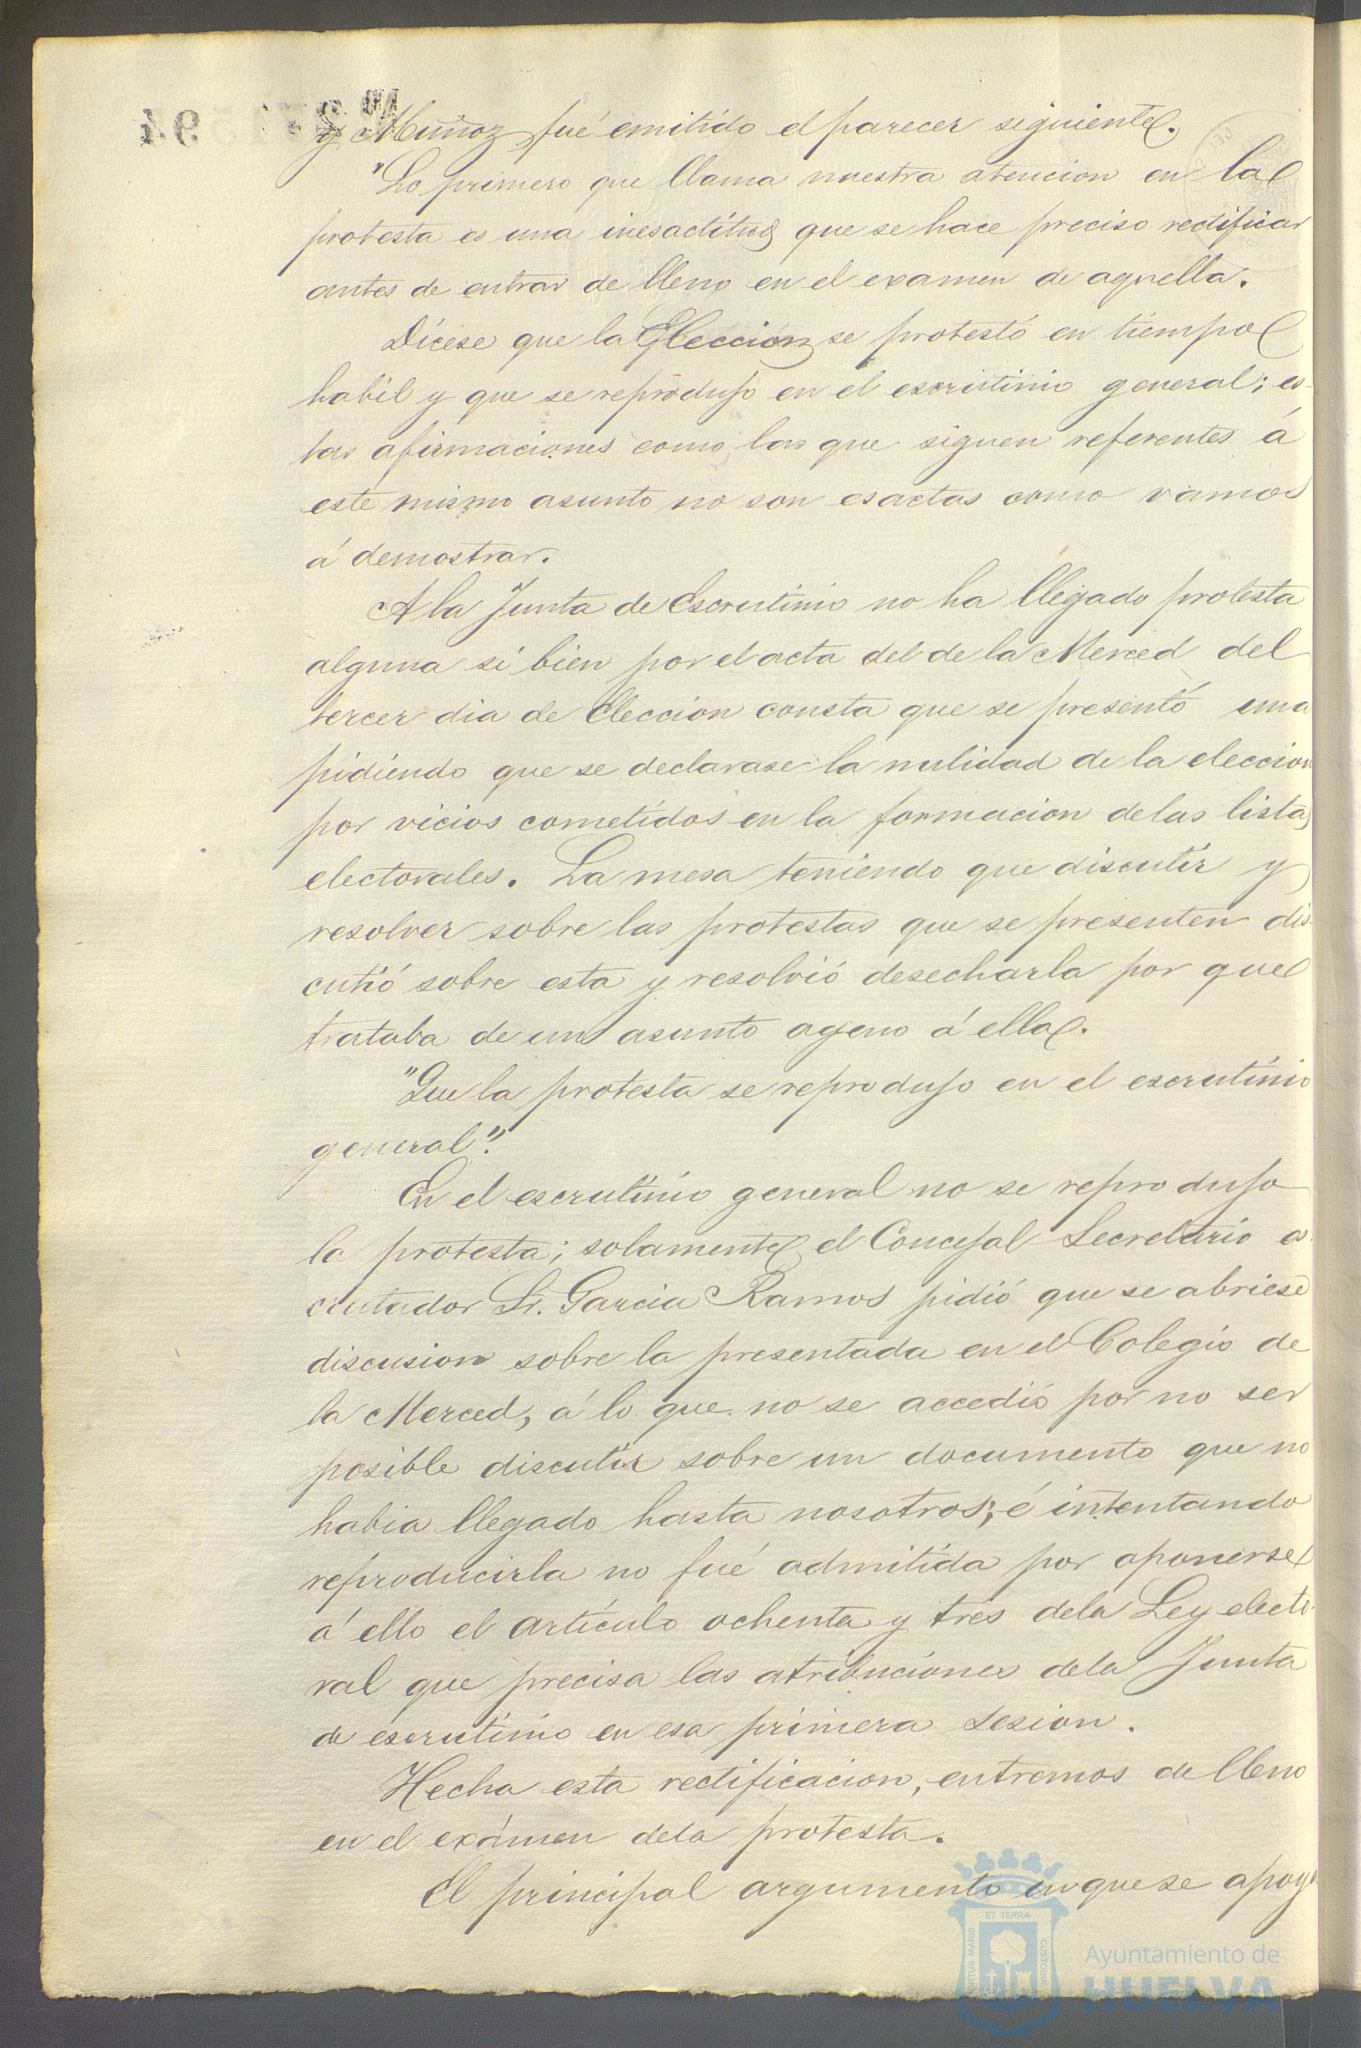 y Muñoz, fué emitido el parecer siguiente.
"Lo primero que llama nuestra atencion en la
protesta es una inesactitud que se hace preciso rectificar
antes de entrar de lleno en el examen de aquella.
Dícese que la Eleccion se protestó en tiempo
habil y que se reprodujo en el escrutinio general; es-
tas afirmaciones como las que siguen referentes á
este mismo asunto no son esactas como vamos
á demostrar.
A la Junta de Escrutinio no ha llegado protesta
alguna si bien por el acta del de la Merced del
tercer dia de Eleccion consta que se presentó una
pidiendo que se declarase la nulidad de la eleccion
por vicios cometidos en la formacion de las listas
electorales. La mesa teniendo que discutir y
resolver sobre las protestas que se presenten dis
cutió sobre esta y resolvió desecharla por que
trataba de un asunto ageno á ella.
"Que la protesta se reprodujo en el escrutinio
general".
En el escrutinio general no se reprodujo
la protesta; solamente el Concejal Secretario es
crutador Sr. Garcia Ramos pidió que se abriese
discusion sobre la presentada en el Colegio de
la Merced, á lo que no se accedió por no ser
posible discutir sobre un documento que no
habia llegado hasta nosotros; é intentando
reproducirla no fué admitida por oponerse
á ello el artículo ochenta y tres de la Ley electo-
ral que precisa las atribuciones de la Junta
de escrutinio en esa primera sesion.
Hecha esta rectificacion, entremos de lleno
en el exámen de la protesta.
El principal argumento en que se apoya
ET TERRÆ
PORTUS MARIS
CUSTODIA
Ayuntamiento de
HUELVA